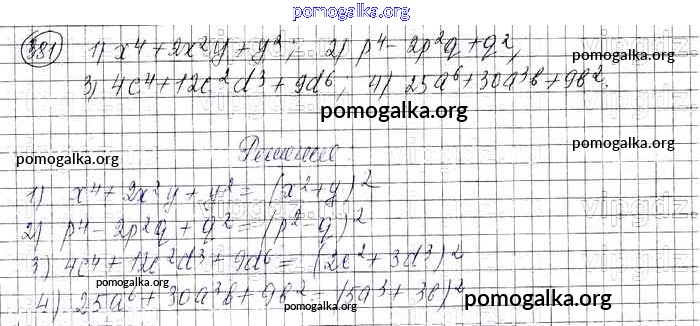 pomogalka.org
381 1) x⁴ + 2x²y + y²; 2) p⁴ - 2p²q + q²,
pomogalka.org pomogalka.org
3) 4c⁴ + 12c²d³ + 9d⁶; 4) 25a⁶ + 30a³b + 9b².
pomogalka.org
pomogalka.org Решение pomogalka.org
1) x⁴ + 2x²y + y² = (x² + y)²
2) p⁴ - 2p²q + q² = (p² - q)²
3) 4c⁴ + 12c²d³ + 9d⁶ = (2c² + 3d³)²
4) 25a⁶ + 30a³b + 9b² = (5a³ + 3b)²
pomogalka.org pomogalka.org